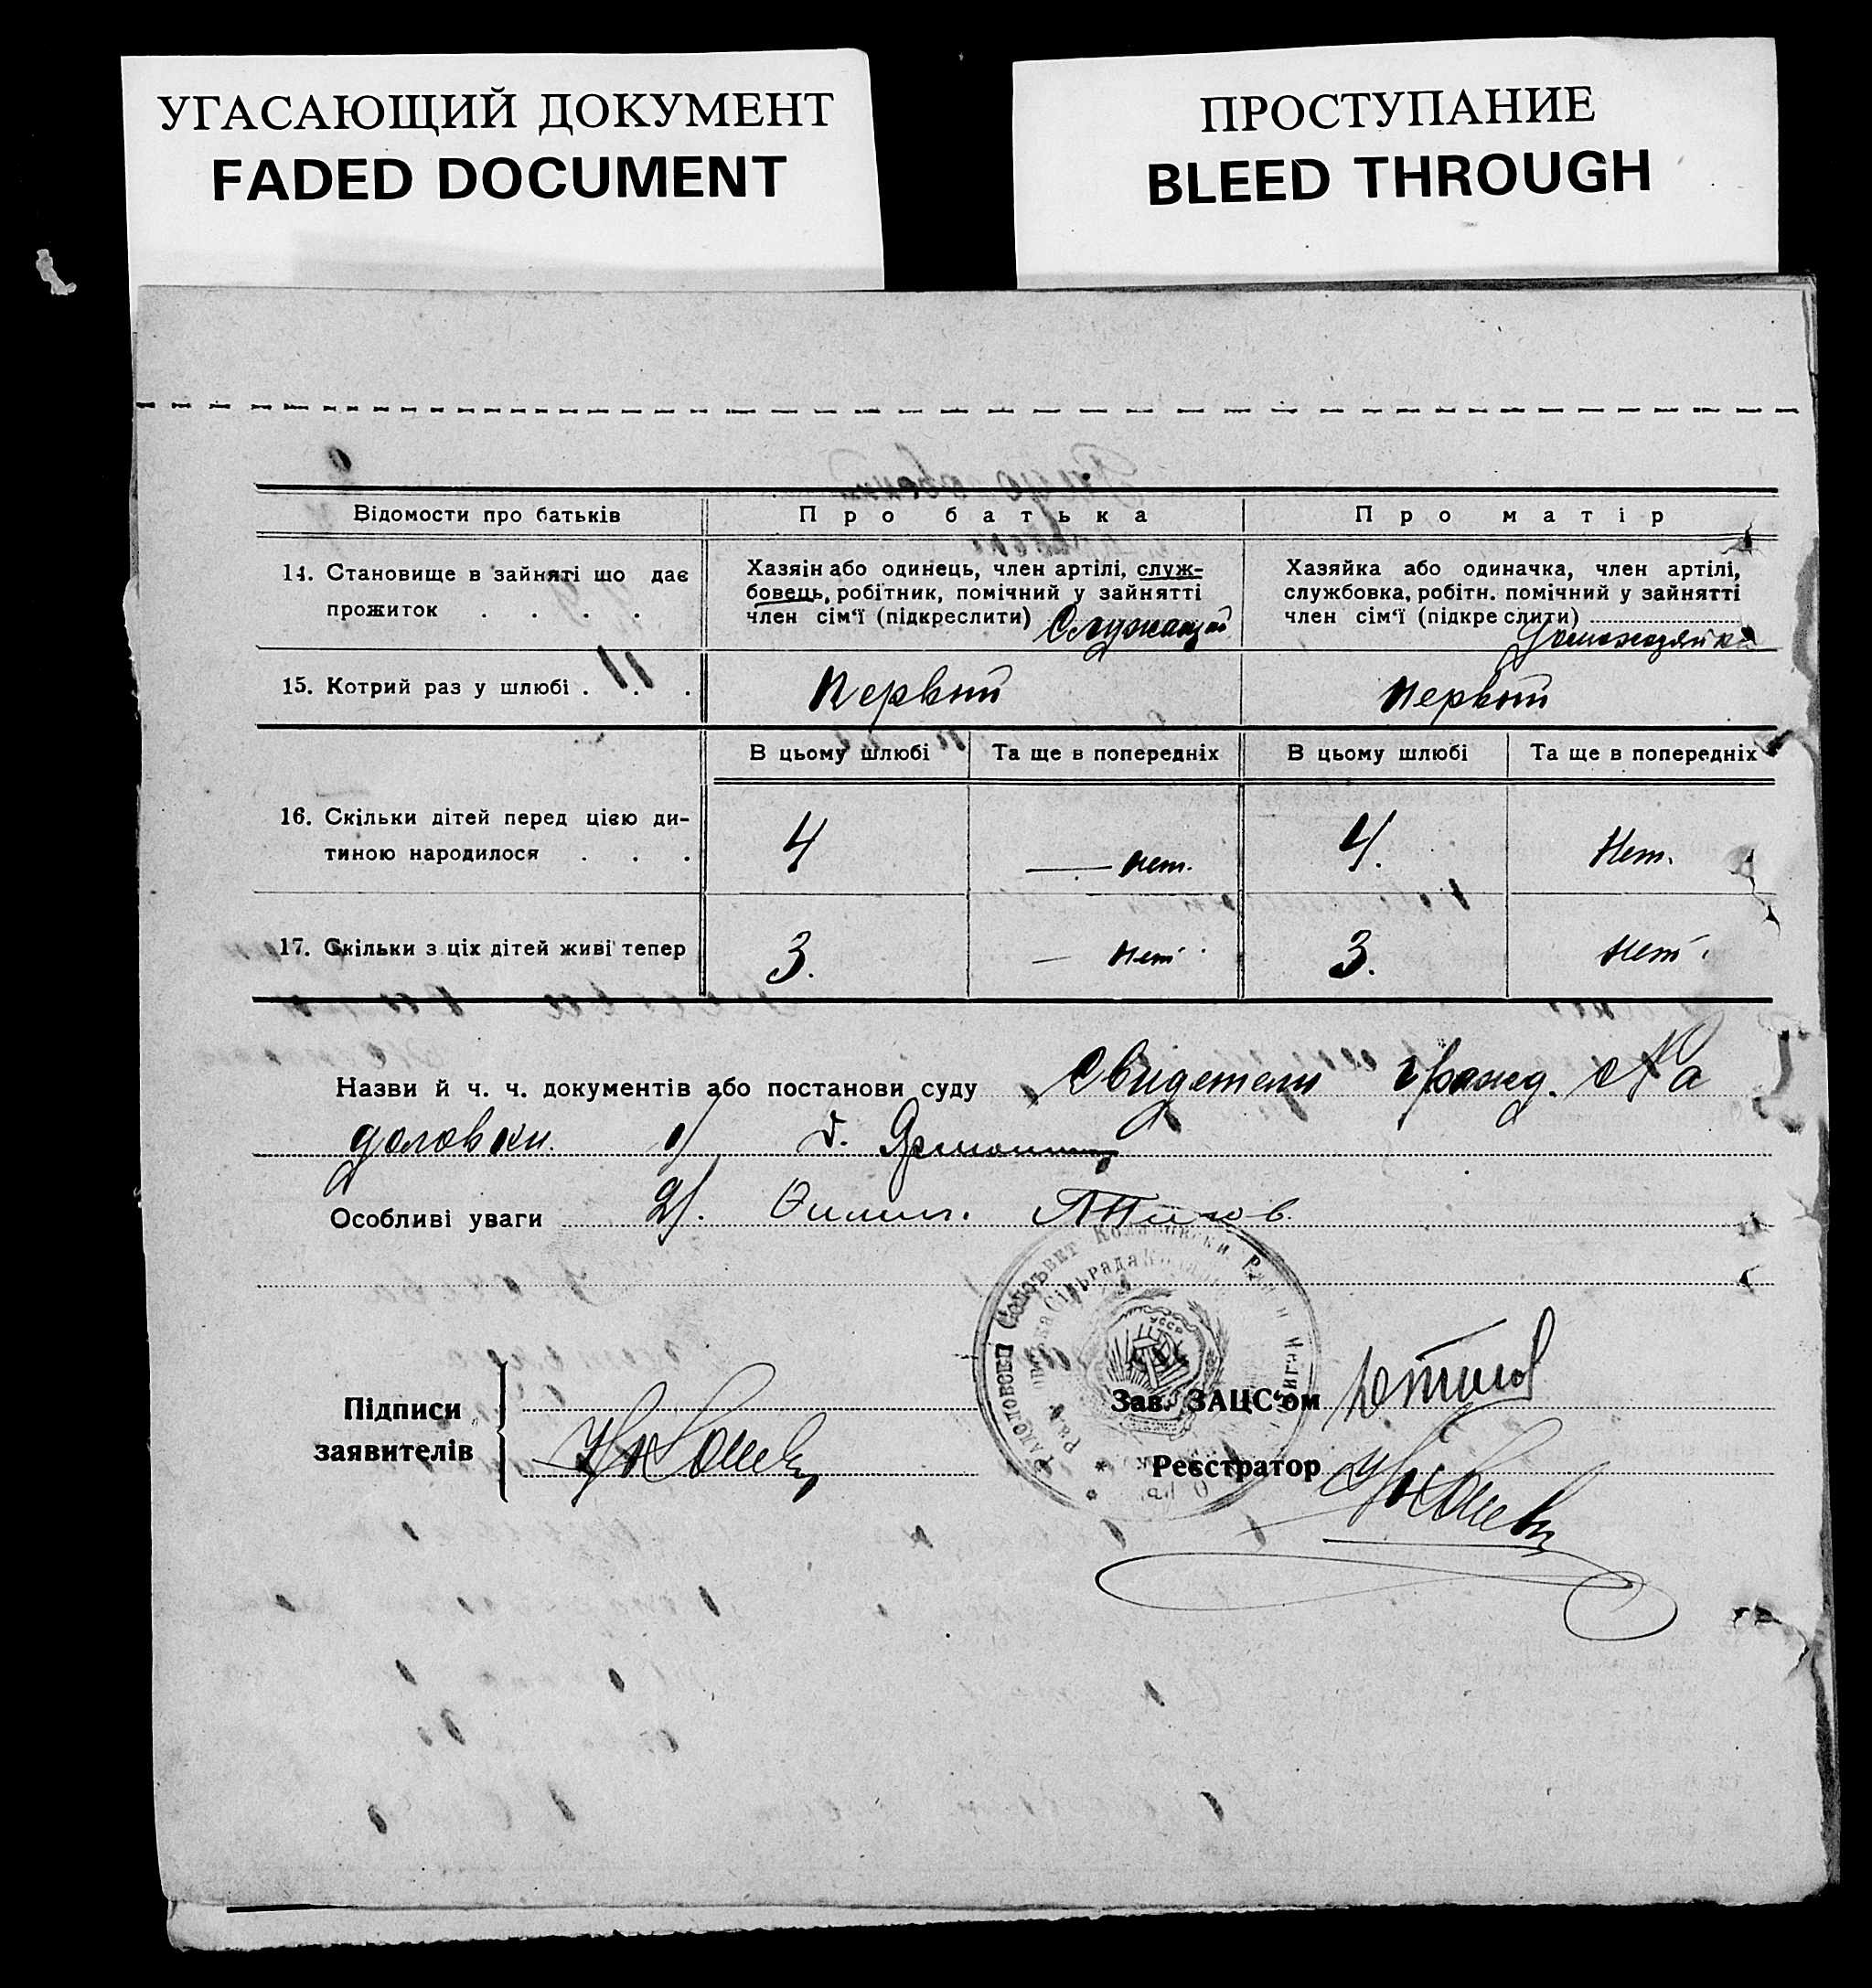 УГАСАЮЩИЙ ДОКУМЕНТ
FADED DOCUMENT
ПРОСТУПАНИЕ
BLEED THROUGH
Відомости про батьків
Про батька
Про матір
14. Становище в зайняті що дає
прожиток . . . .
Хазяін або одинець, член артілі, служ-
бовець, робітник, помічний у зайнятті
член сім'ї (підкреслити) Служащий
Хазяйка або одиначка, член артілі,
службовка, робітн. помічний у зайнятті
член сім'ї (підкреслити)
Домохозяйка
15. Котрий раз у шлюбі . . .
Первый
Первый
В цьому шлюбі
Та ще в попередніх
В цьому шлюбі
Та ще в попередніх
16. Скільки дітей перед цією ди-
тиною народилося . . .
4
— нет.
4.
Нет.
17. Скільки з ціх дітей живі тепер
3.
— нет
3.
нет.
Назви й ч. ч. документів або постанови суду Свидетели гражд.
1/
Особливі уваги 2/.
УССР
Підписи
заявителів
Зав. ЗАЦС'ом
Реєстратор